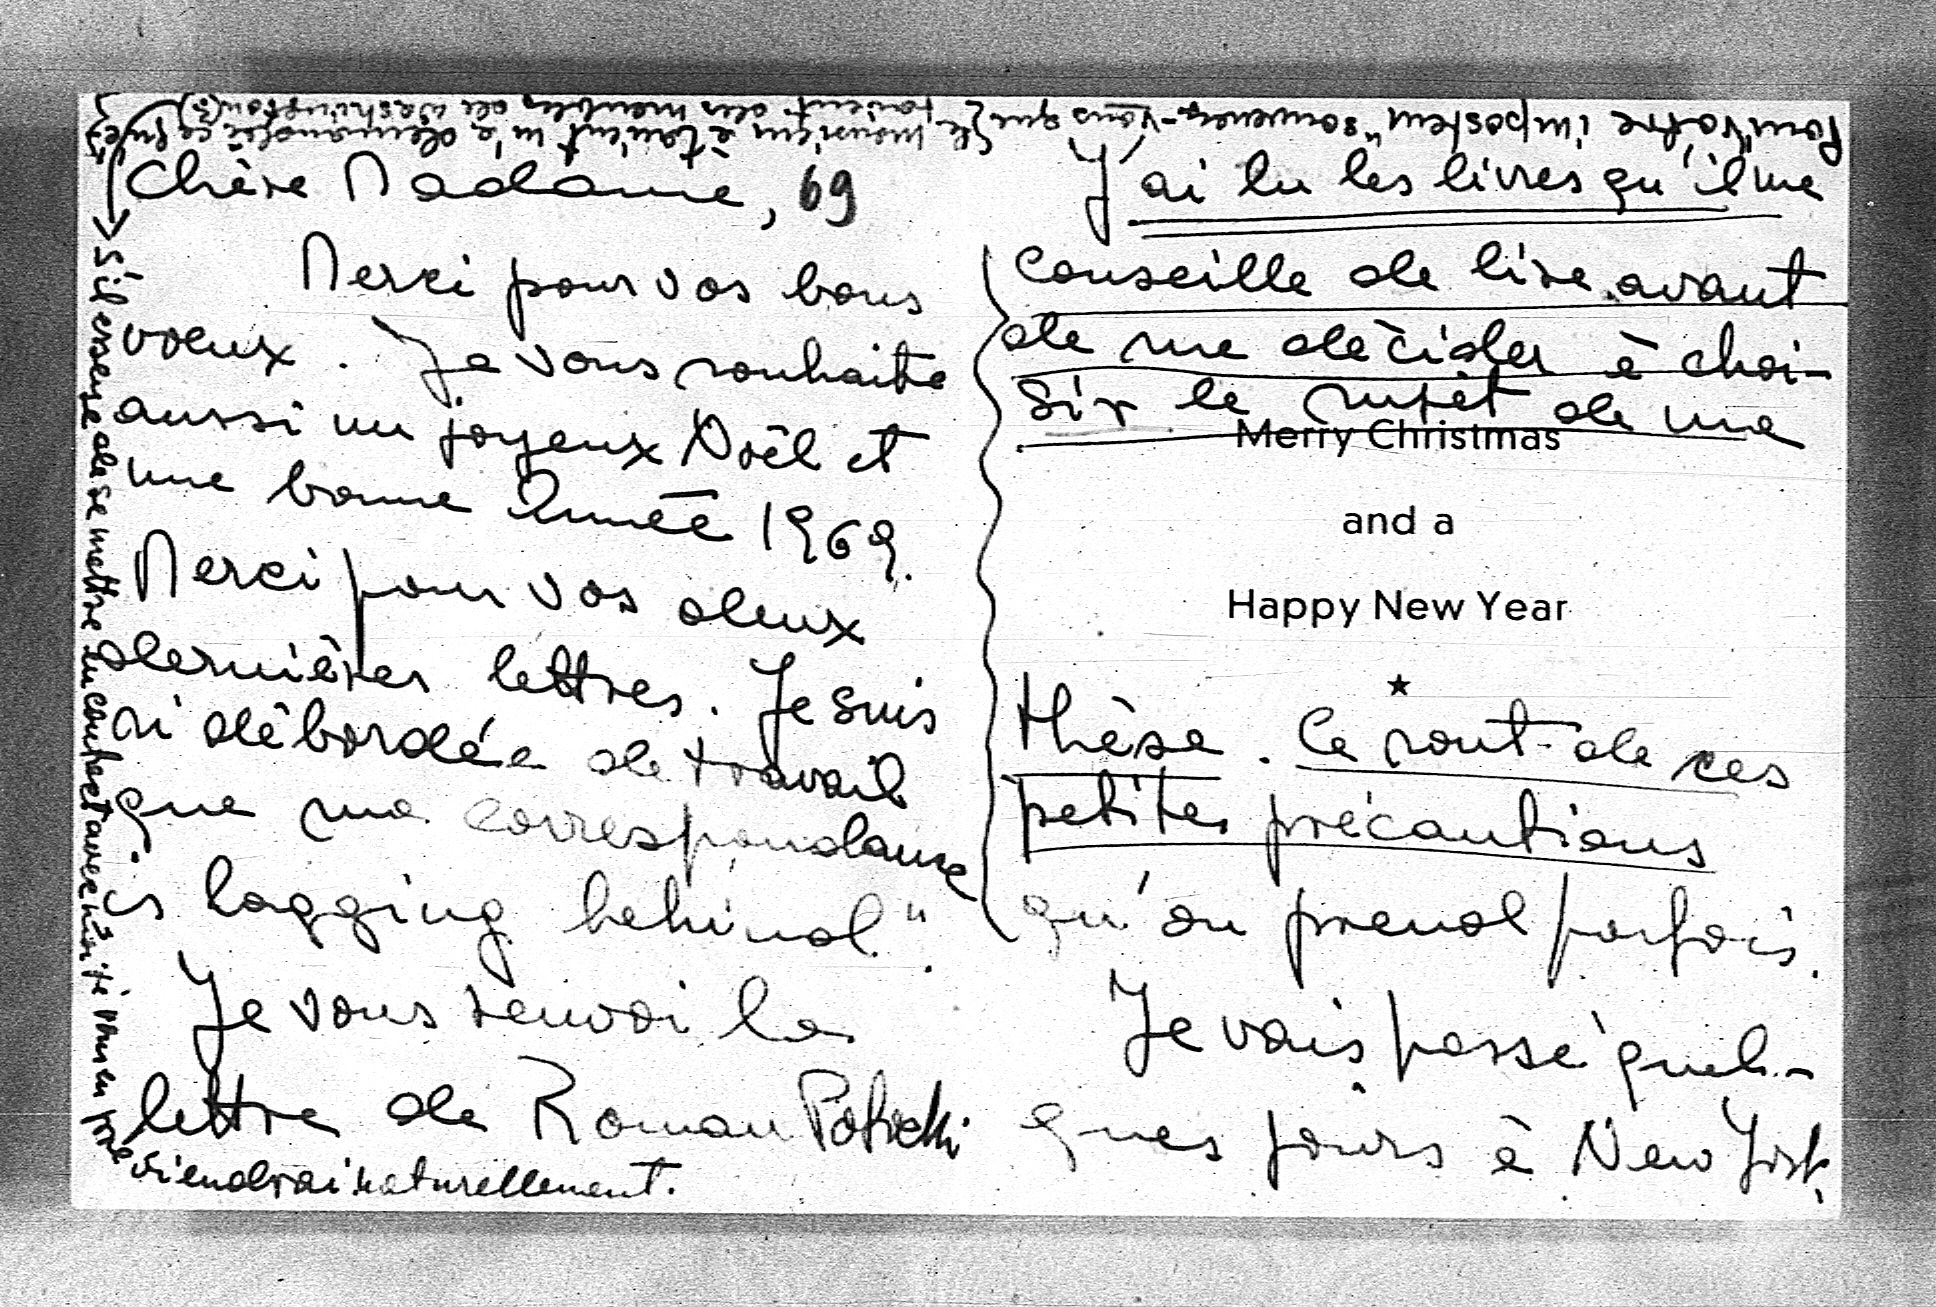 Chère Madame, 69
Merci pour vos bons
voeux. Je vous souhaite
aussi un joyeux Noël et
une bonne Année 1969.
Merci pour vos deux
dernières lettres. Je suis
si débordée de travail
que ma correspondance
"is lagging behind".
Je vous renvoi la
lettre de Roman Potocki
J'ai lu les livres qu'il me
conseille de lire avant
de me décider à choi-
sir le sujet de ma
Merry Christmas
and a
Happy New Year
thèse. Ce sont de ces
petites précautions
qu'on prend parfois.
Je vais passé quel-
ques jours à New York.
Pour "Votre imposteur" souvenez-vous que
le monsieur étaient m'a demandée ce
parient des meubles de Washington(?)
S'il essaye de se mettre en contact avec moi je vous en pré
viendrai naturellement.